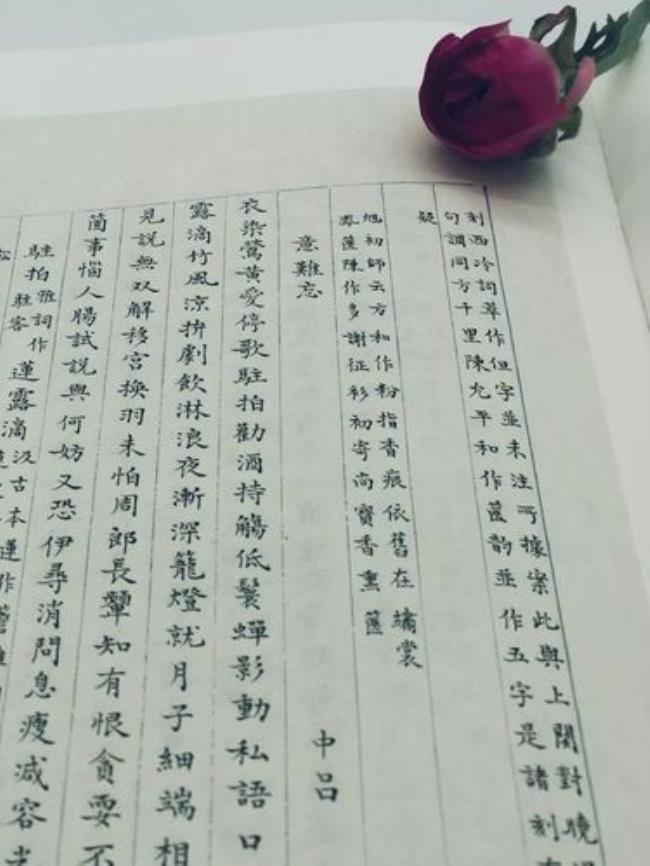 刻西泠詞萃作但字並未注丂據案此與上闋對曉
句調同方千里陳允平和作舊韵並作五字是諸刻
疑
旭初師云方和作粉指香痕依舊在繡裳
蓮陳作多謝征衫初寄尚寶香熏舊
意難忘 中呂
衣染鶯黃愛停歌駐拍勸酒持觴低鬟蟬影動私語口
露滴竹風涼拚劇飲淋浪夜漸深籠燈就月子細端相
見說無双解移宮換羽未怕周郎長顰知有恨貪耍不
箇事惱人腸試說與何妨又恐伊尋消問息瘦減容光
駐拍雅詞作
駐客
蓮露滴汲古本蓮作